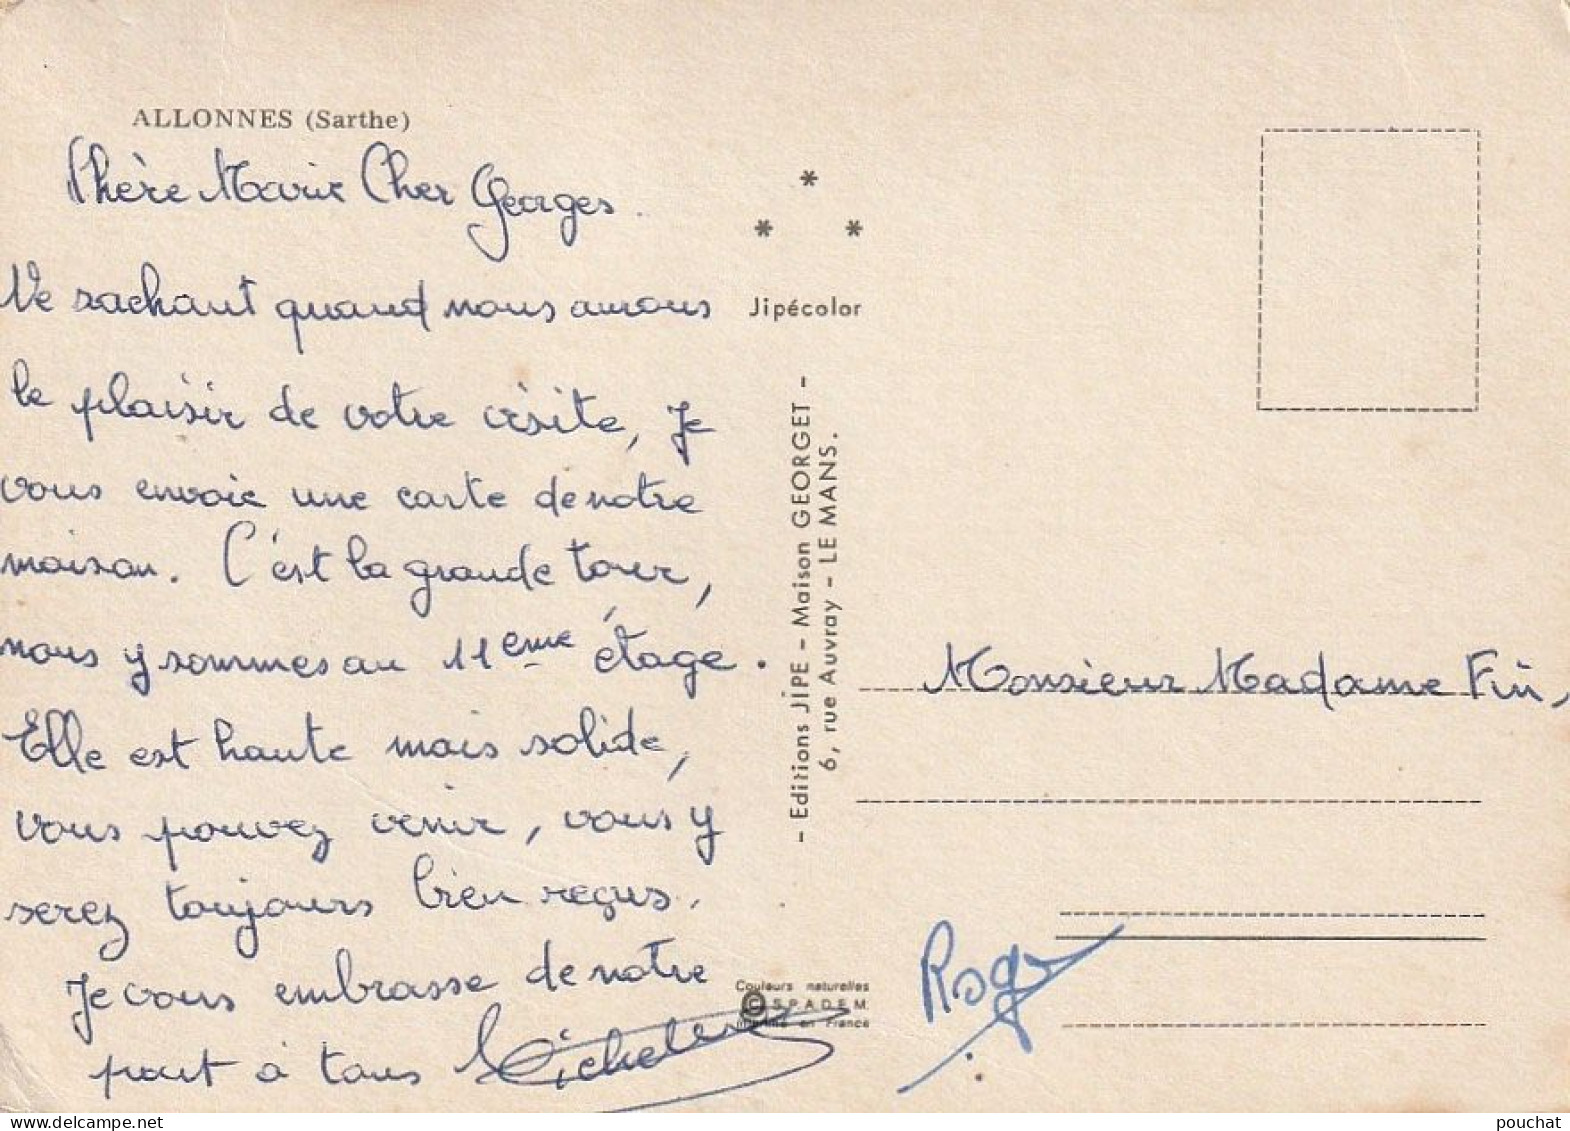 ALLONNES (Sarthe)
Chère Marie Cher Georges
Ne sachant quand nous aurons
le plaisir de votre visite, Je
vous envoie une carte de notre
maison. C'est la grande tour,
nous y sommes au 11eme étage.
Elle est haute mais solide,
vous pouvez venir, vous y
serez toujours bien reçus.
Je vous embrasse de notre
part à tous
* * *
Jipécolor
- Editions JIPE - Maison GEORGET -
6, rue Auvray - LE MANS.
Couleurs naturelles
© S.P.A.D.E.M.
Imprimé en France
Monsieur Madame Fin,
Roger
pouchat